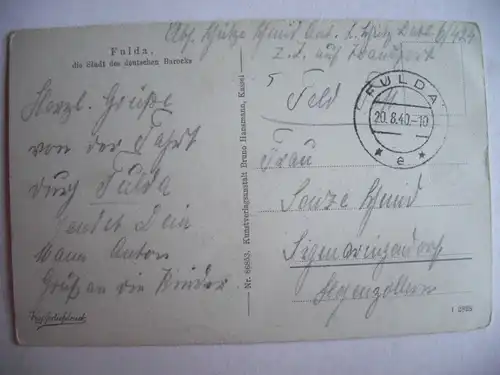 Fulda,
die Stadt des deutschen Barocks
Herzl. Grüße
von der Fahrt
durch Fulda
sendet Dein
Mann Anton
Gruß an die Kinder
Nr. 89853. Kunstverlagsanstalt Bruno Hansmann, Kassel
Abs. Schütze Schmid Ant.
z. Z. auf Transport
Feld
FULDA
20.8.40.-10
* e *
Frau
Schmid
Sigmaringendorf
Hohenzollern